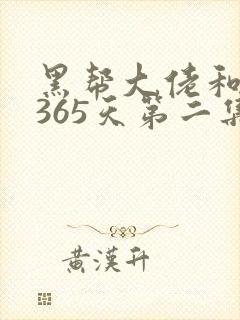 黑帮大佬和
365天第二集
黄汉升